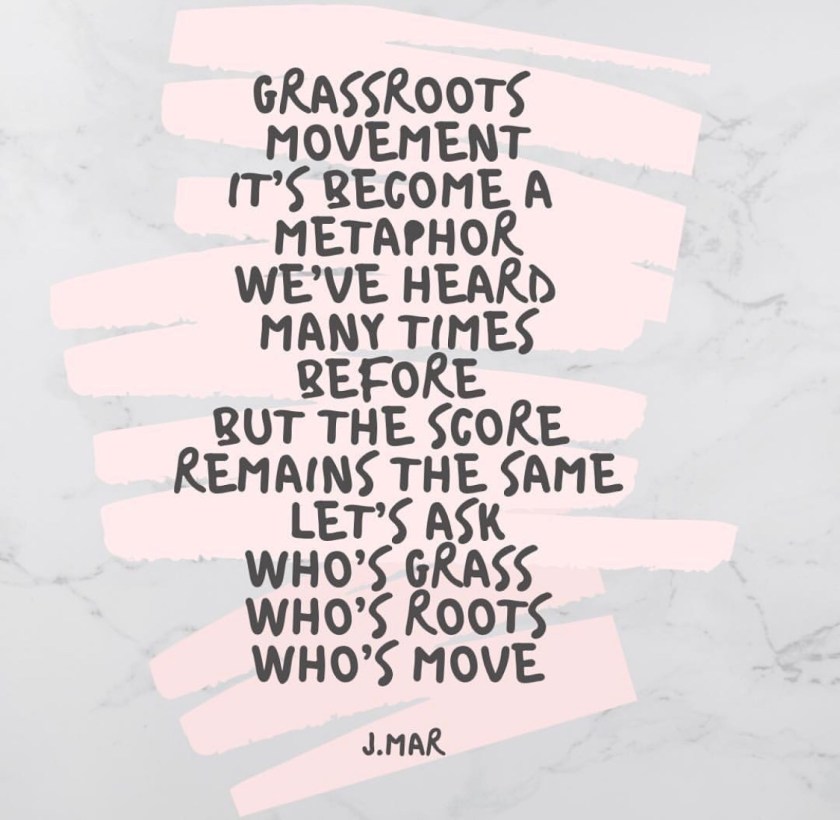 GRASSROOTS
MOVEMENT
IT'S BECOME A
METAPHOR
WE'VE HEARD
MANY TIMES
BEFORE
BUT THE SCORE
REMAINS THE SAME
LET'S ASK
WHO'S GRASS
WHO'S ROOTS
WHO'S MOVE
J.MAR